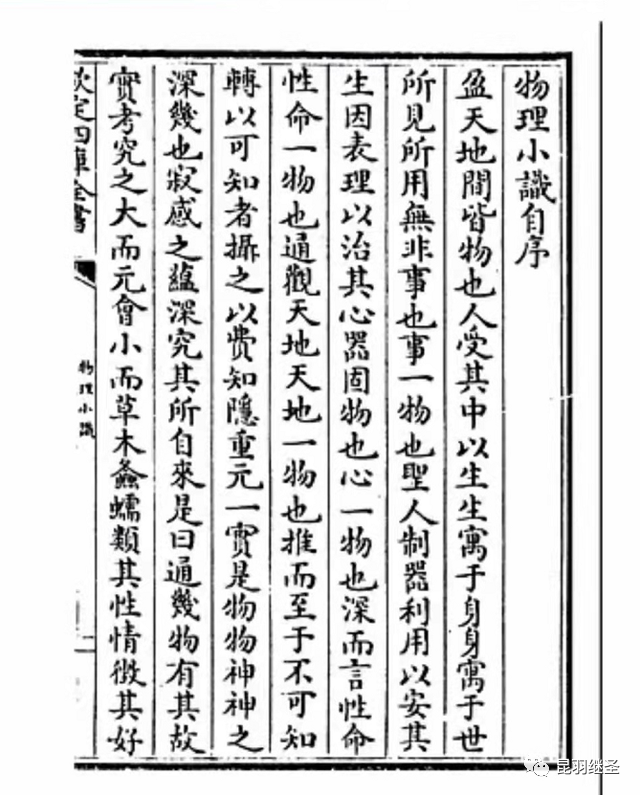 物理小識自序
盈天地間皆物也人受其中以生生寓于身身寓于世
所見所用無非事也事一物也聖人制器利用以安其
生因表理以治其心器固物也心一物也深而言性命
性命一物也通觀天地天地一物也推而至于不可知
轉以可知者攝之以費知隱重元一實是物物神神之
深幾也寂感之蘊深究其所自來是曰通幾物有其故
實考究之大而元會小而草木螽蠕類其性情徵其好
欽定四庫全書
物理小識
昆羽继圣